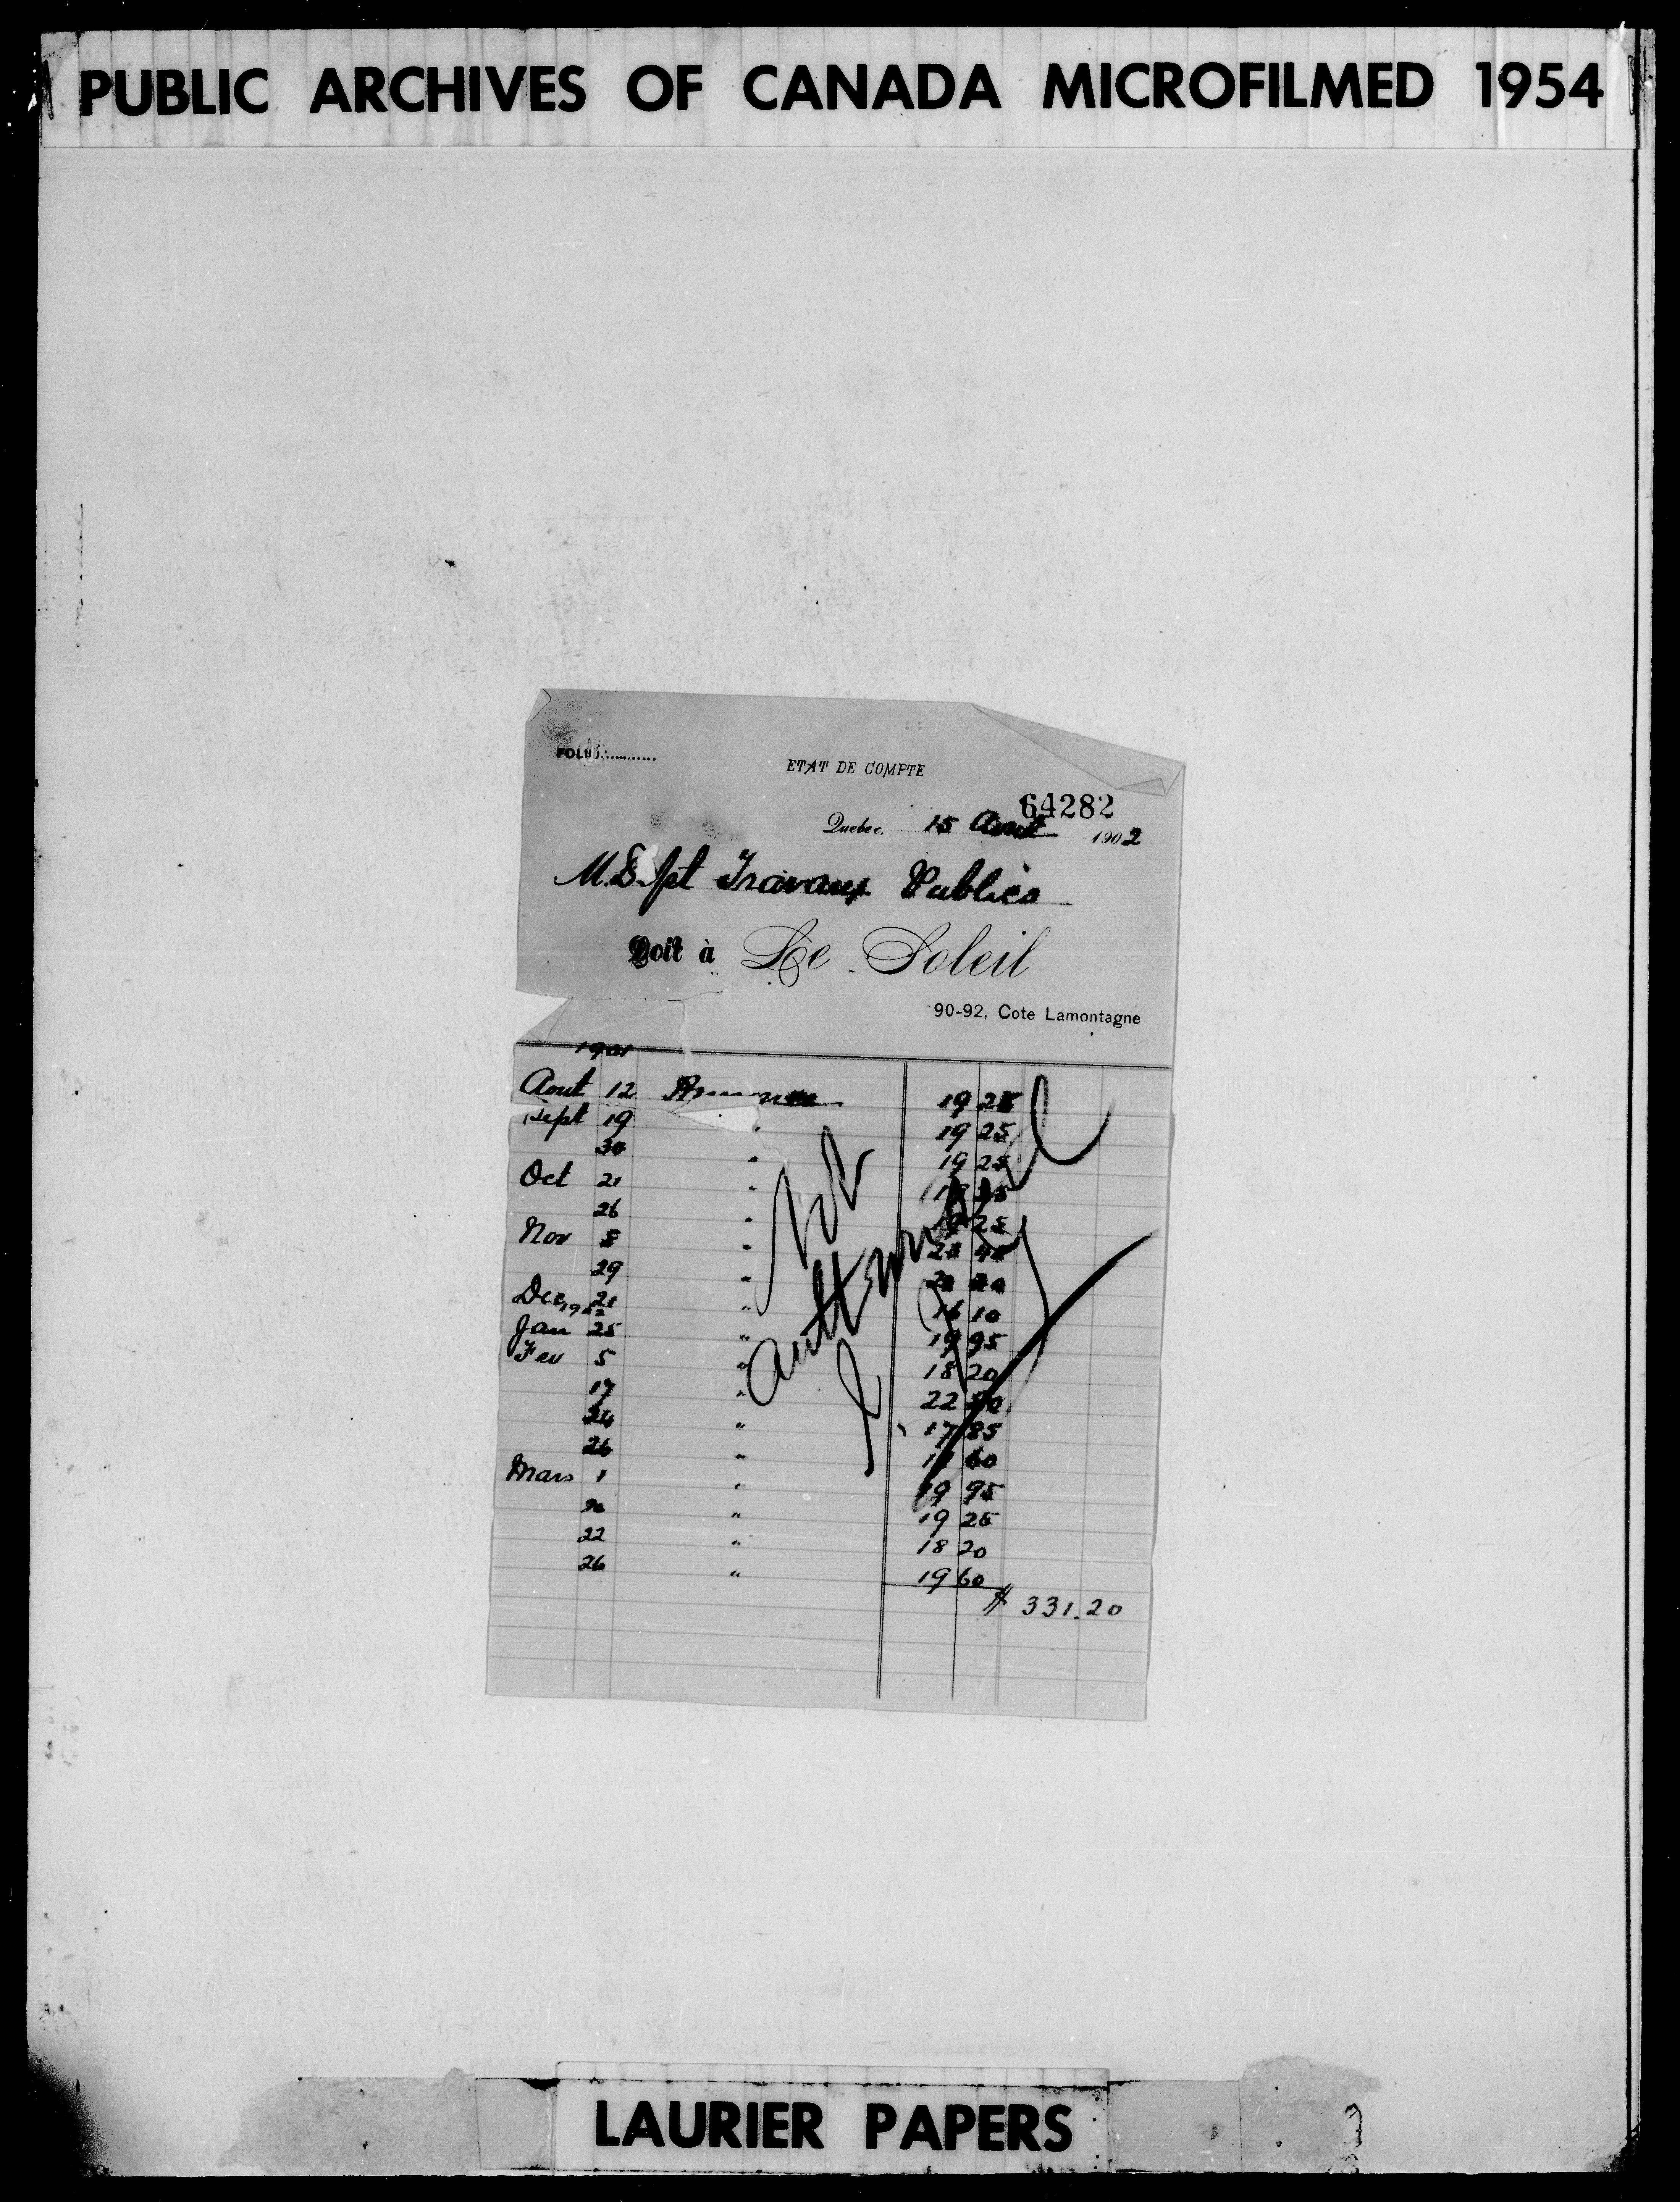 PUBLIC ARCHIVES OF CANADA MICROFILMED 1954
FOLIO
ETAT DE COMPTE
64282
Quebec, 15 Aout 1902
M. Dept Travaux Publics
Doit à Le Soleil
90-92, Cote Lamontagne
1901
Aout 12 Annonce 19 25
Sept 19 " 19 25
30 " 19 25
Oct 21 "
26 " 25
Nov 8 "
29 "
Dec 21 " 16 10
1902
Jan 25 " 19 95
Fev 5 " 18 20
17 " 22
24 " 17 85
26 " 60
Mars 1 " 19 95
" 19 25
22 " 18 20
26 " 19 60
$ 331.20
Not
authorized
LAURIER PAPERS